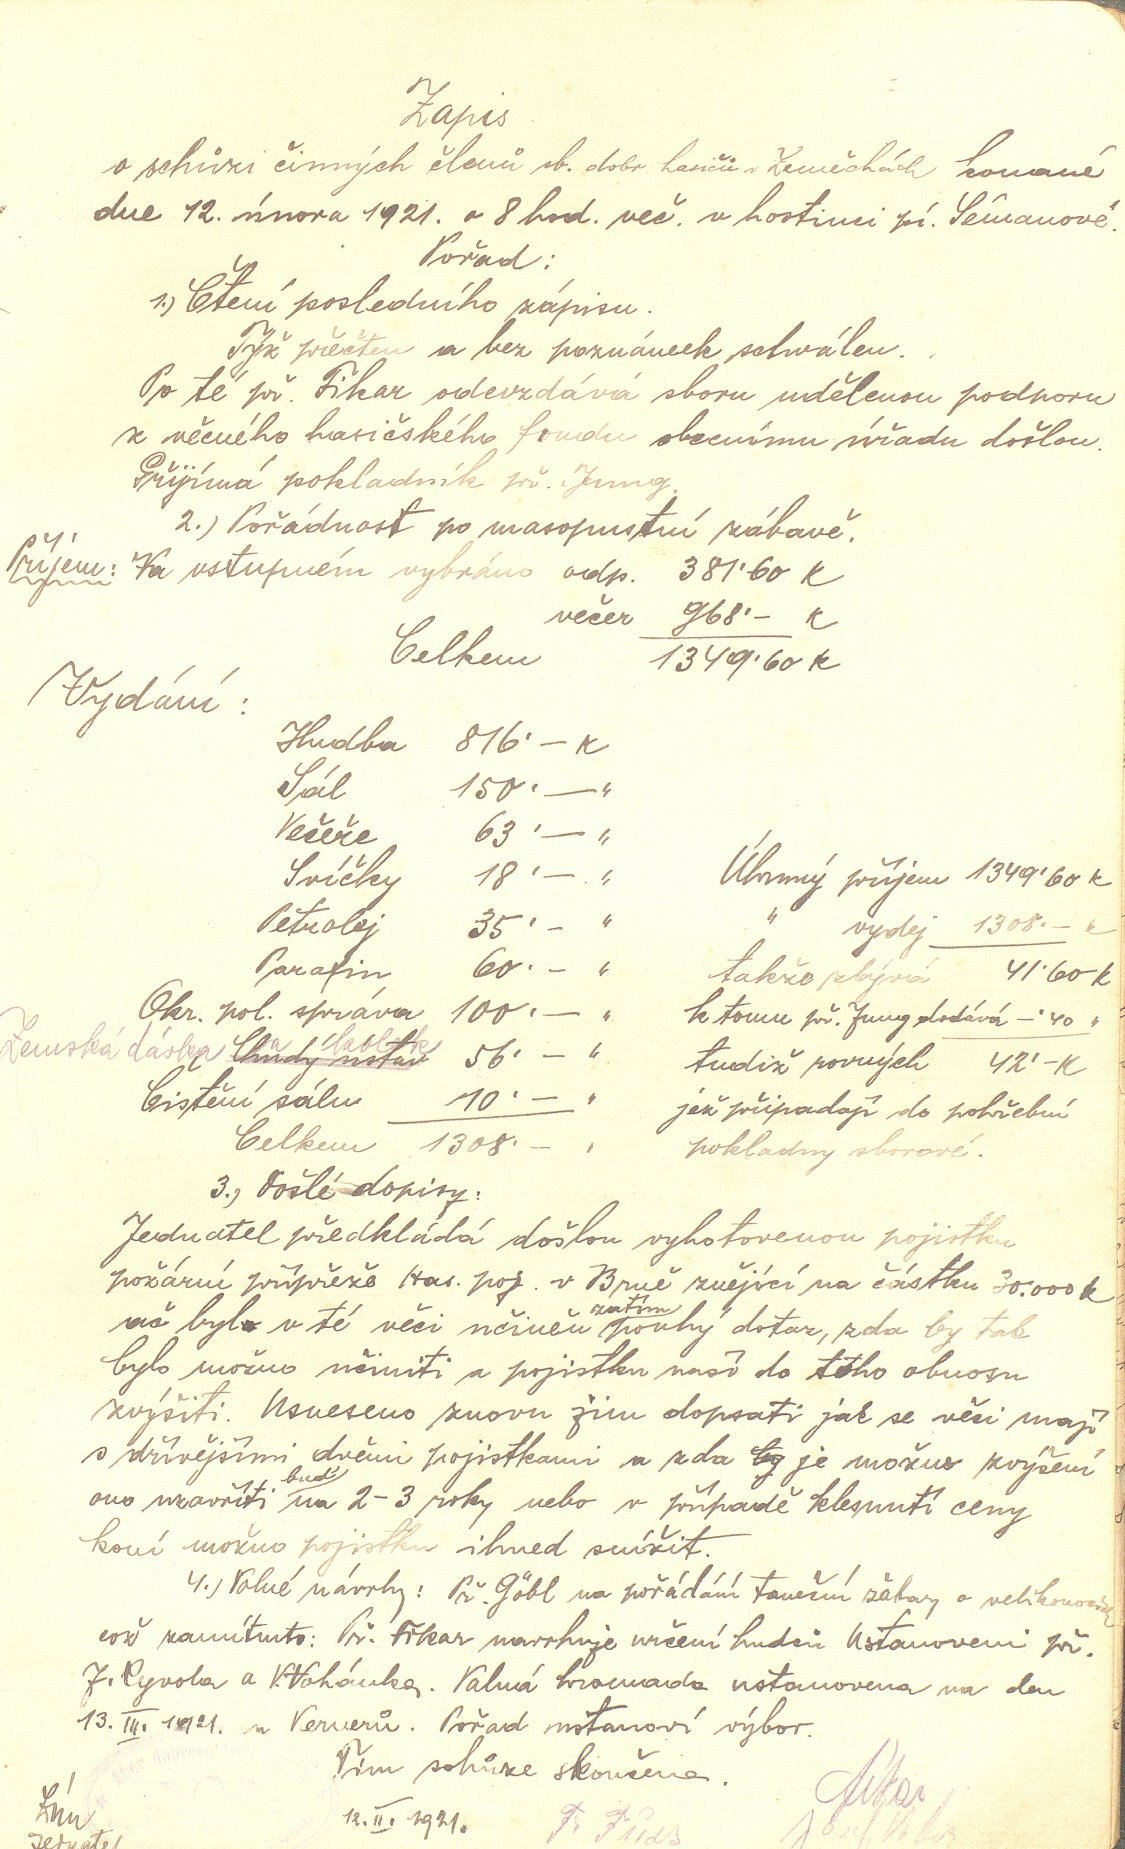 Zapis
o schůzi činných členů sb. dobr. hasičů v Zeměchách konané
dne 12. února 1921. o 8 hod. več. v hostinci pí. Sémanové.
Pořad:
1.) Čtení posledního zápisu.
Týž přečten a bez poznámek schválen.
Po té př. Fikar odevzdává sboru udělenou podporu
z věcného hasičského fondu obecnímu úřadu došlou.
Přijímá pokladník př. Jung.
2.) Pořádnost po masopustní zábavě.
Příjem: Na vstupném vybráno odp. 381·60 K
večer 968·– K
Celkem 1349·60 K
Vydání:
Hudba 816·– K
Sál 150·– "
Večeře 63·– "
Svíčky 18·– "
Petrolej 35·– "
Parafin 60·– "
Okr. pol. správa 100·– "
Zemská dávka 56·– "
Čistění sálu 10·– "
Celkem 1308·– "
Úhrnný příjem 1349·60 K
" vydej 1308·– "
takže zbývá 41·60 K
k tomu př. Jung dodává –·40 "
tudiž rovných 42·– K
jež připadají do pohřební
pokladny sborové.
3.) Došlé dopisy:
Jednatel předkládá došlou vyhotovenou pojistku
požární přípřeže Has. poj. v Brně znějící na částku 30.000 K
ač bylo v té věci učiněn zatím "pouhý" dotaz, zda by tak
bylo možno učiniti a pojistku naší do toho obnosu
zvýšiti. Usneseno znovu jim dopsati jak se věci mají
s dřívějšími dvěmi pojistkami a zda by je možno zvýšení
ono uzavříti buď na 2–3 roky nebo v případě klesnutí ceny
koní možno pojistku ihned snížit.
4.) Volné návrhy: Př. Göbl na pořádání taneční zábavy o velikonocích
což zamítnuto: Př. Fikar navrhuje určení hudců Ustanoveni př.
J. Ryvola a V. Vohánka. Valná hromada ustanovena na den
13. III. 1921. u Vernerů. Pořad ustanoví výbor.
Tím schůze skončena.
12. II. 1921.
Fikar
jednatel